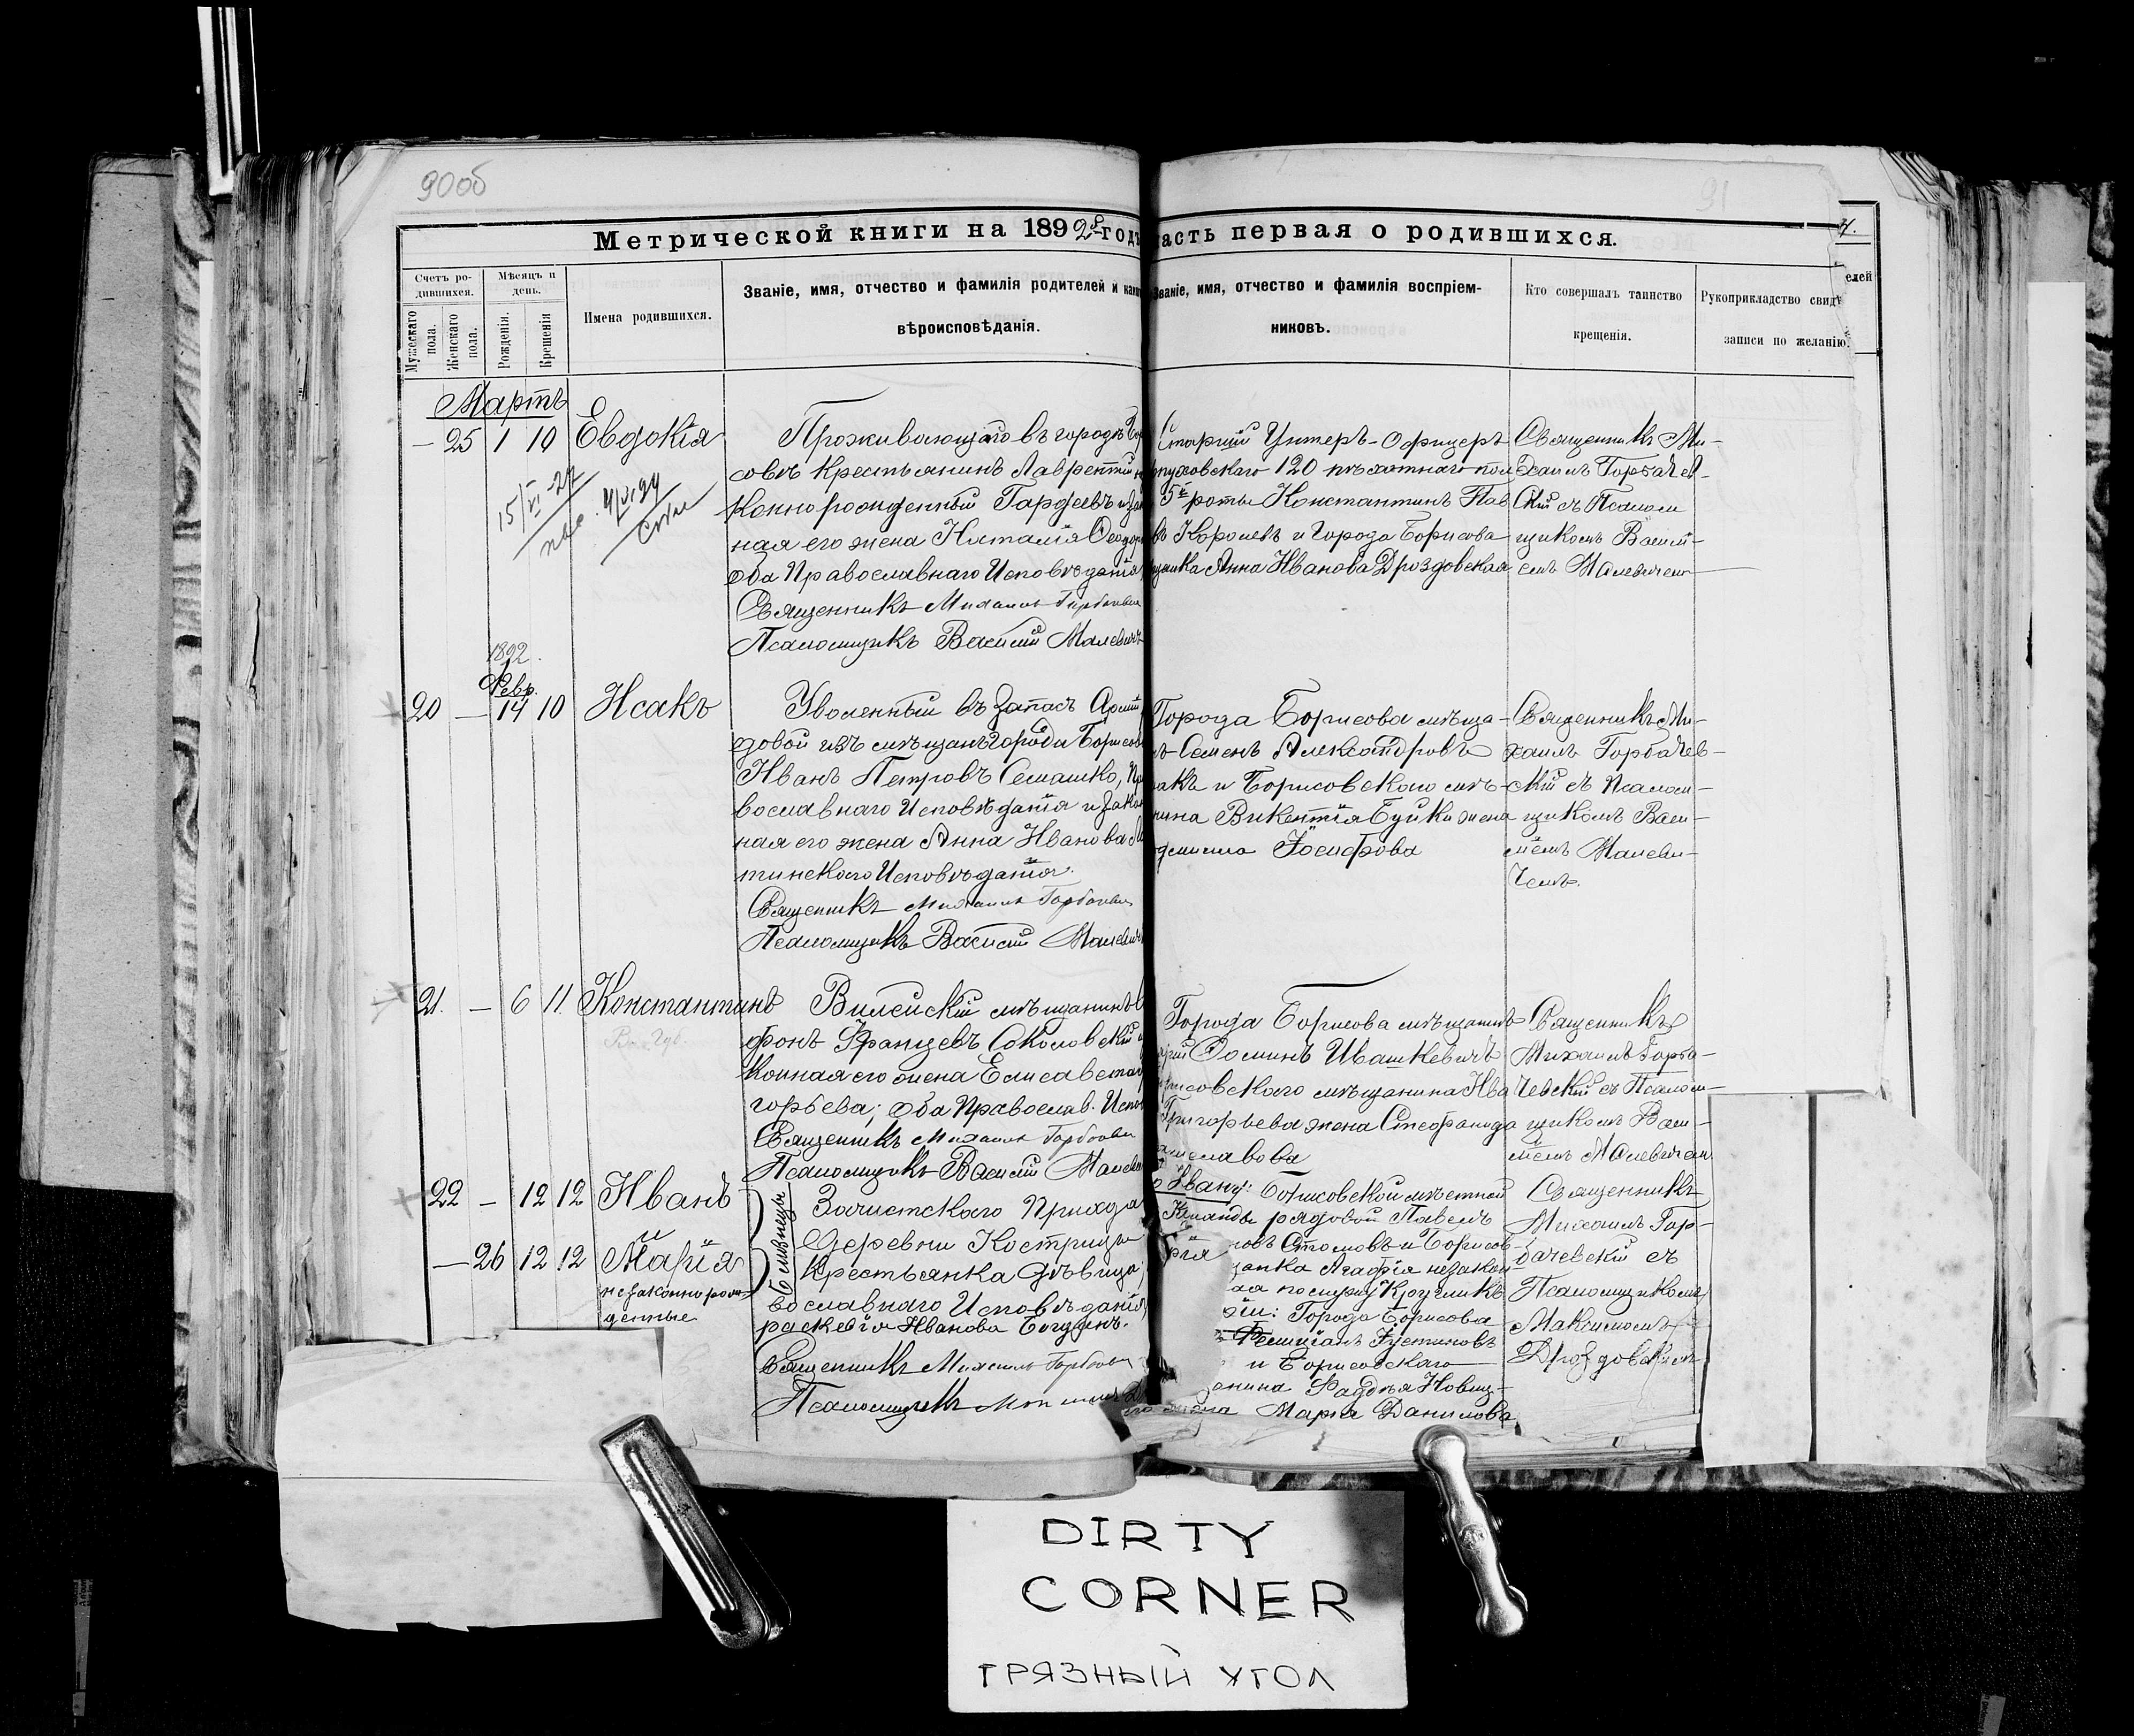 90об
91
Метрической книги на 1892й годъ
часть первая о родившихся.
Счетъ ро-
дившихся.
Мужескаго
пола.
Женскаго
пола.
Мѣсяцъ и
день.
Рожденія.
Крещенія
Имена родившихся.
Званіе, имя, отчество и фамилія родителей и
вѣроисповѣданія.
Званіе, имя, отчество и фамилія воспріем-
никовъ.
Кто совершалъ таинство
крещенія.
Рукоприкладство
записи по желанію.
елей
Мартъ
— 25 1 10 Евдокія
Проживающаго въ городѣ Бори
совѣ Крестьянинъ Лаврентій
законнорожденный Гордѣевъ и
ная его жена Наталія Ѳеодор
оба Православнаго Исповѣданія
Священникъ Михаилъ Горбачев
Псаломщикъ Василій Малевичъ
Старшій Унтеръ-Офицеръ
пуховскаго 120 пѣхотнаго пол
5й роты Константинъ Пав
въ Королевъ и Города Борисова
щанка Анна Иванова Дроздовская
Священникъ Ми-
хаилъ Горбачев-
скій съ Псалом
щикомъ Васілі-
емъ Малевичемъ
1892
Февр.
20 — 14 10 Исакъ
Уволенный въ запасъ Арміи
довой изъ мѣщанъ города Борисов
Иванъ Петровъ Семашко, Пра
вославнаго Исповѣданія и закон
ная его жена Анна Иванова
тинскаго Исповѣданія.
Священникъ Михаилъ Горбачев
Псаломщикъ Василій Малевичъ
Города Борисова мѣща-
Семенъ Александровъ
акъ и Борисовскаго мѣ-
нина Викентія Буйки жена
Іосифова
Священникъ Ми-
хаилъ Горбачев-
скій съ Псалом-
щикомъ Васи-
ліемъ Малеви-
чемъ.
21. — 6 11. Константинъ
Вилейскій мѣщанинъ
фонъ Францевъ Соколовскій и
конная его жена Елисавета
горьева; оба Православ. Испов
Священникъ Михаилъ Горбачев
Псаломщикъ Василій Малеви
Города Борисова мѣщанинъ
Фоминъ Ивашкевичъ
рисовскаго мѣщанина Ива
Григорьева жена Стефанида
иславова
Священникъ
Михаилъ Горба-
чевскій съ Псалом-
щикомъ Васи-
ліемъ Малевичемъ
22 — 12 12 Иванъ
и
— 26 12 12 Марія
незаконнорож-
денные
близнецы
Зачистскаго Прихода
Деревни Кострицы
Крестьянка Дѣвица,
вославнаго Исповѣданія
раскевія Иванова Богданъ.
Священникъ Михаилъ Горбачев
Псаломщикъ
Ивану: Борисовской мѣстной
Команды рядовой Павелъ
новъ Стомовъ и Борисов-
щанка Агафія незакон
Города Борисова
и Борисовскаго
анина Фаддея Новиц-
его жена Марія Данилова
Священникъ
Михаилъ Гор-
бачевскій съ
Псаломщикомъ
Максимомъ
Дроздовскимъ
DIRTY
CORNER
ГРЯЗНЫЙ УГОЛ